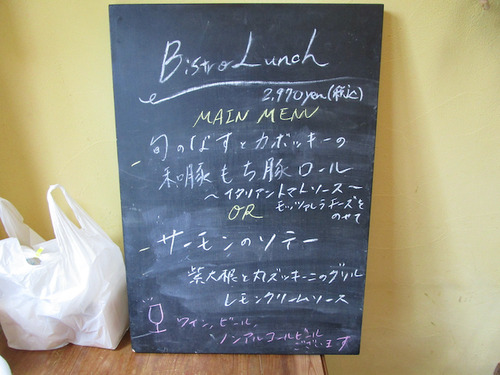 Bistro Lunch
2,970yen(税込)
MAIN MENU
- 旬のなすとカポッキーの
和豚もち豚ロール
～イタリアントマトソース～
OR モッツァレラチーズを
のせて
- サーモンのソテー
紫大根と丸ズッキーニのグリル
レモンクリームソース
ワイン、ビール、
ノンアルコールビール
ございます